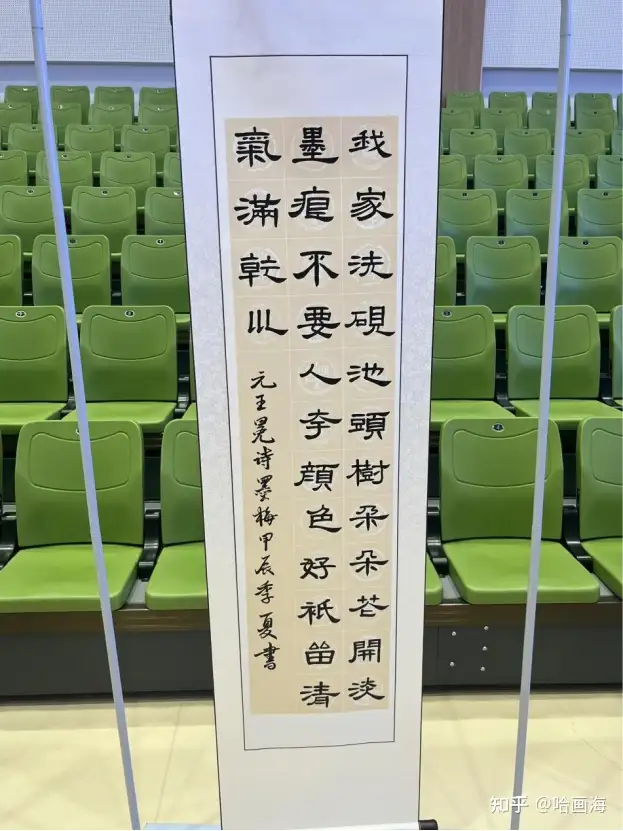 我家洗硯池頭樹朵朵花開淡
墨痕不要人夸顔色好祇留清
氣滿乾巛
元王冕诗墨梅甲辰季夏書
知乎 @哈画海